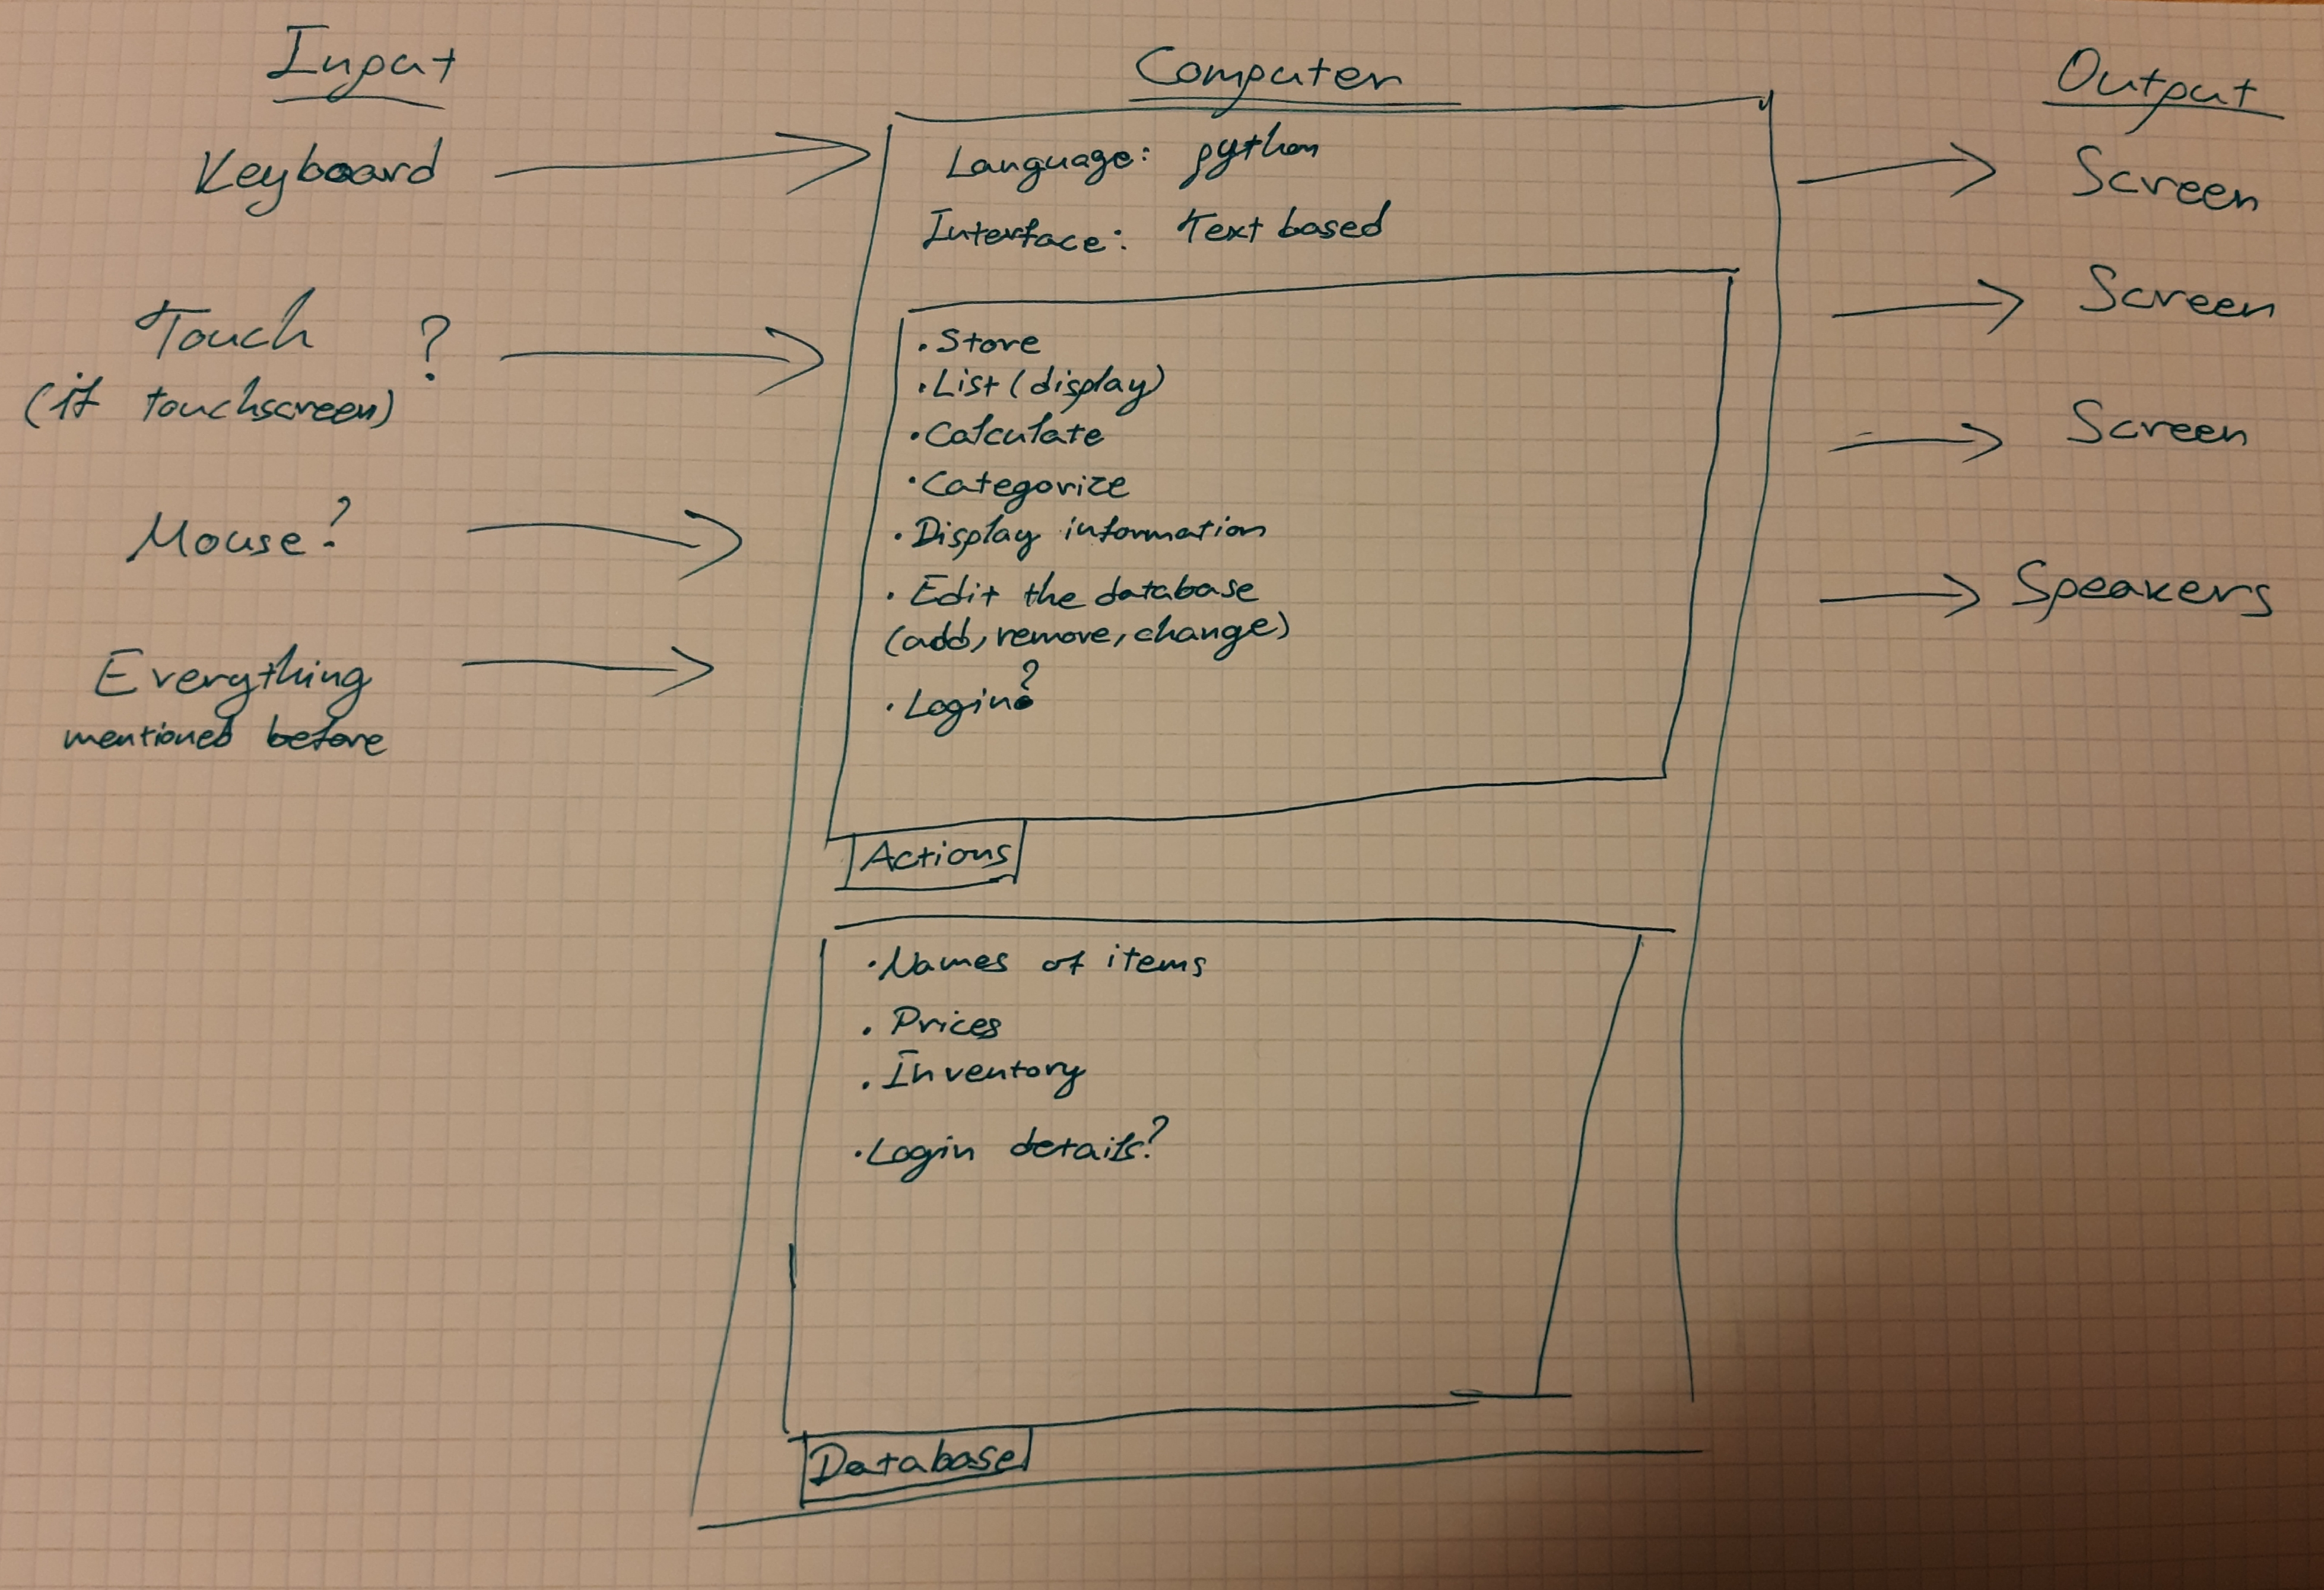 Input
Keyboard
Touch ?
(if touchscreen)
Mouse?
Everything
mentioned before
Computer
Language: python
Interface: Text based
• Store
• List (display)
• Calculate
• Categorize
• Display information
• Edit the database
(add, remove, change)
• Login?
Actions
• Names of items
• Prices
• Inventory
• Login details?
Database
Output
Screen
Screen
Screen
Speakers